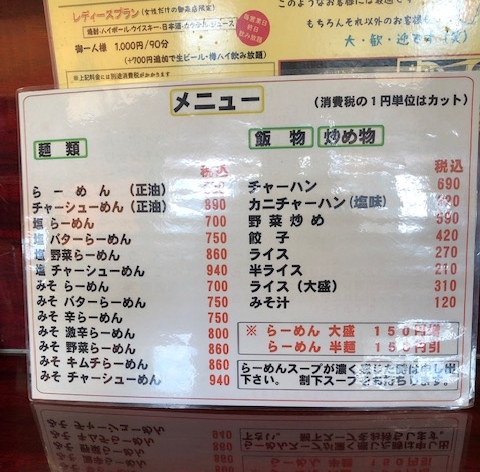 レディースプラン (女性だけの御来店限定)
焼酎・ハイボール・ウイスキー・日本酒・カクテル・ジュース
御一人様 1,000円/90分
(+700円追加で生ビール・樽ハイ飲み放題)
※上記料金には別途消費税がかかります。
このような
もちろんそれ以外のお客様
大・歓・迎です(笑)
メニュー
(消費税の1円単位はカット)
麺類
税込
らーめん (正油)
チャーシューめん (正油) 890
塩 らーめん 700
塩 バターらーめん 750
塩 野菜らーめん 860
塩 チャーシューめん 940
みそ らーめん 700
みそ バターらーめん 750
みそ 辛らーめん 750
みそ 激辛らーめん 800
みそ 野菜らーめん 860
みそ キムチらーめん 860
みそ チャーシューめん 940
飯物 炒め物
税込
チャーハン 690
カニチャーハン(塩味)
野菜炒め 590
餃子 420
ライス 270
半ライス 210
ライス (大盛) 310
みそ汁 120
※ らーめん 大盛 150円増
らーめん 半麺 150円引
らーめんスープが濃く感じた時は申し出
下さい。 割下スープお持ちします。